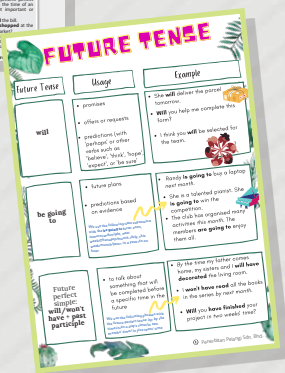 the time of an
important or
the bill.
chopped at the
market?
FUTURE TENSE
Future Tense
Usage
Example
will
• promises
• offers or requests
• predictions (with
'perhaps' or other
verbs such as
'believe', 'think', 'hope',
'expect', or 'be sure'
• She will deliver the parcel
tomorrow.
• Will you help me complete this
form?
• I think you will be selected for
the team.
be going
to
• future plans
• predictions based
on evidence
• Randy is going to buy a laptop
next month.
• She is a talented pianist. She
is going to win the
competition.
• The club has organised many
activities this month. The
members are going to enjoy
them all.
Future
perfect
simple:
will/won't
have + past
participle
• to talk about
something that will
be completed before
a specific time in the
future
• By the time my father comes
home, my sisters and I will have
decorated the living room.
• I won't have read all the books
in the series by next month.
• Will you have finished your
project in two weeks' time?